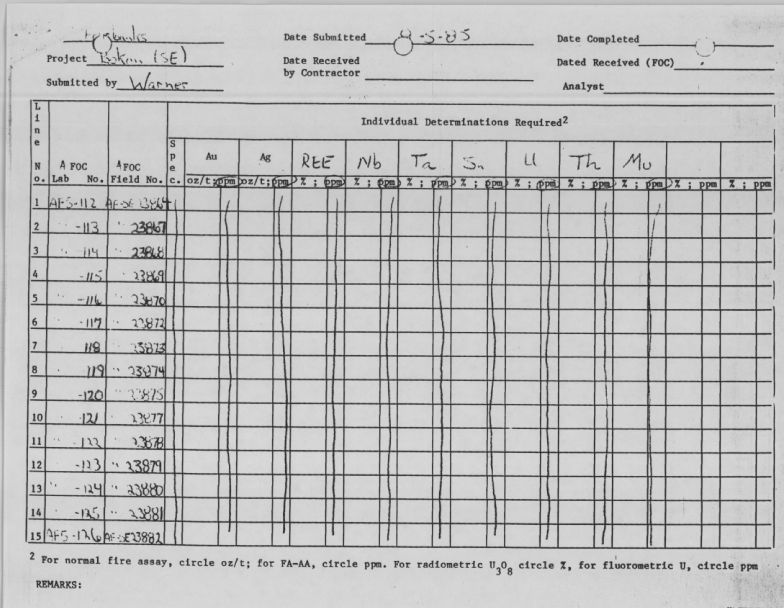 Date Submitted 9-5-85 Date Completed
Project (SE) Date Received by Contractor Dated Received (FOC)
Submitted by Warner Analyst
Line No. A FOC Lab No. A FOC Field No. Spec. Individual Determinations Required2
Au Ag REE Nb Ta Sn U Th Mo
oz/t;ppm oz/t;ppm % ; ppm % ; ppm % ; ppm % ; ppm % ; ppm % ; ppm % ; ppm % ; ppm % ; ppm
1 AFS-112 AF-SE 23864
2 " -113 " 23867
3 " 114 " 23868
4 " -115 " 23869
5 " -116 " 23870
6 " -117 " 23872
7 118 23873
8 " 119 " 23874
9 -120 " 23875
10 " 121 " 23877
11 " -122 " 23878
12 " -123 " 23879
13 " -124 " 23880
14 " -125 " 23881
15 AFS-126 AF-SE 23882
2 For normal fire assay, circle oz/t; for FA-AA, circle ppm. For radiometric U3O8 circle %, for fluorometric U, circle ppm
REMARKS: